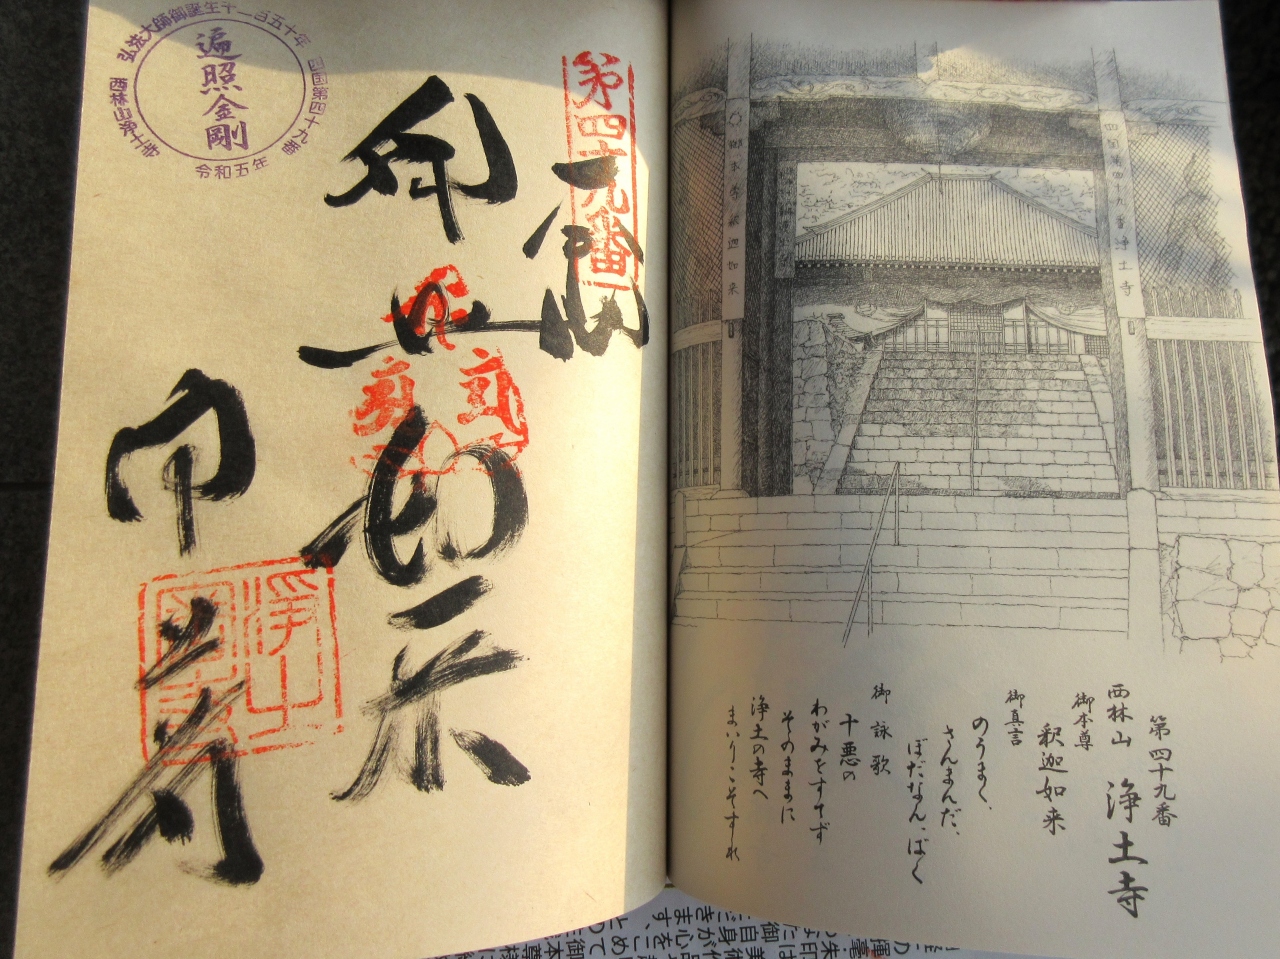 第四十九番
西林山 浄土寺
御本尊
釈迦如来
御真言
のうまく、
さんまんだ、
ぼだなん、ばく
御詠歌
十悪の
わがみをすてず
そのままに
浄土の寺へ
まいりこそすれ
四国第四十九番浄土寺
御本尊釈迦如来
第四十九番
奉
釈迦如来
浄土寺
浄土
弘法大師御誕生千二百五十年
四国第四十九番
西林山浄土寺
令和五年
遍照金剛